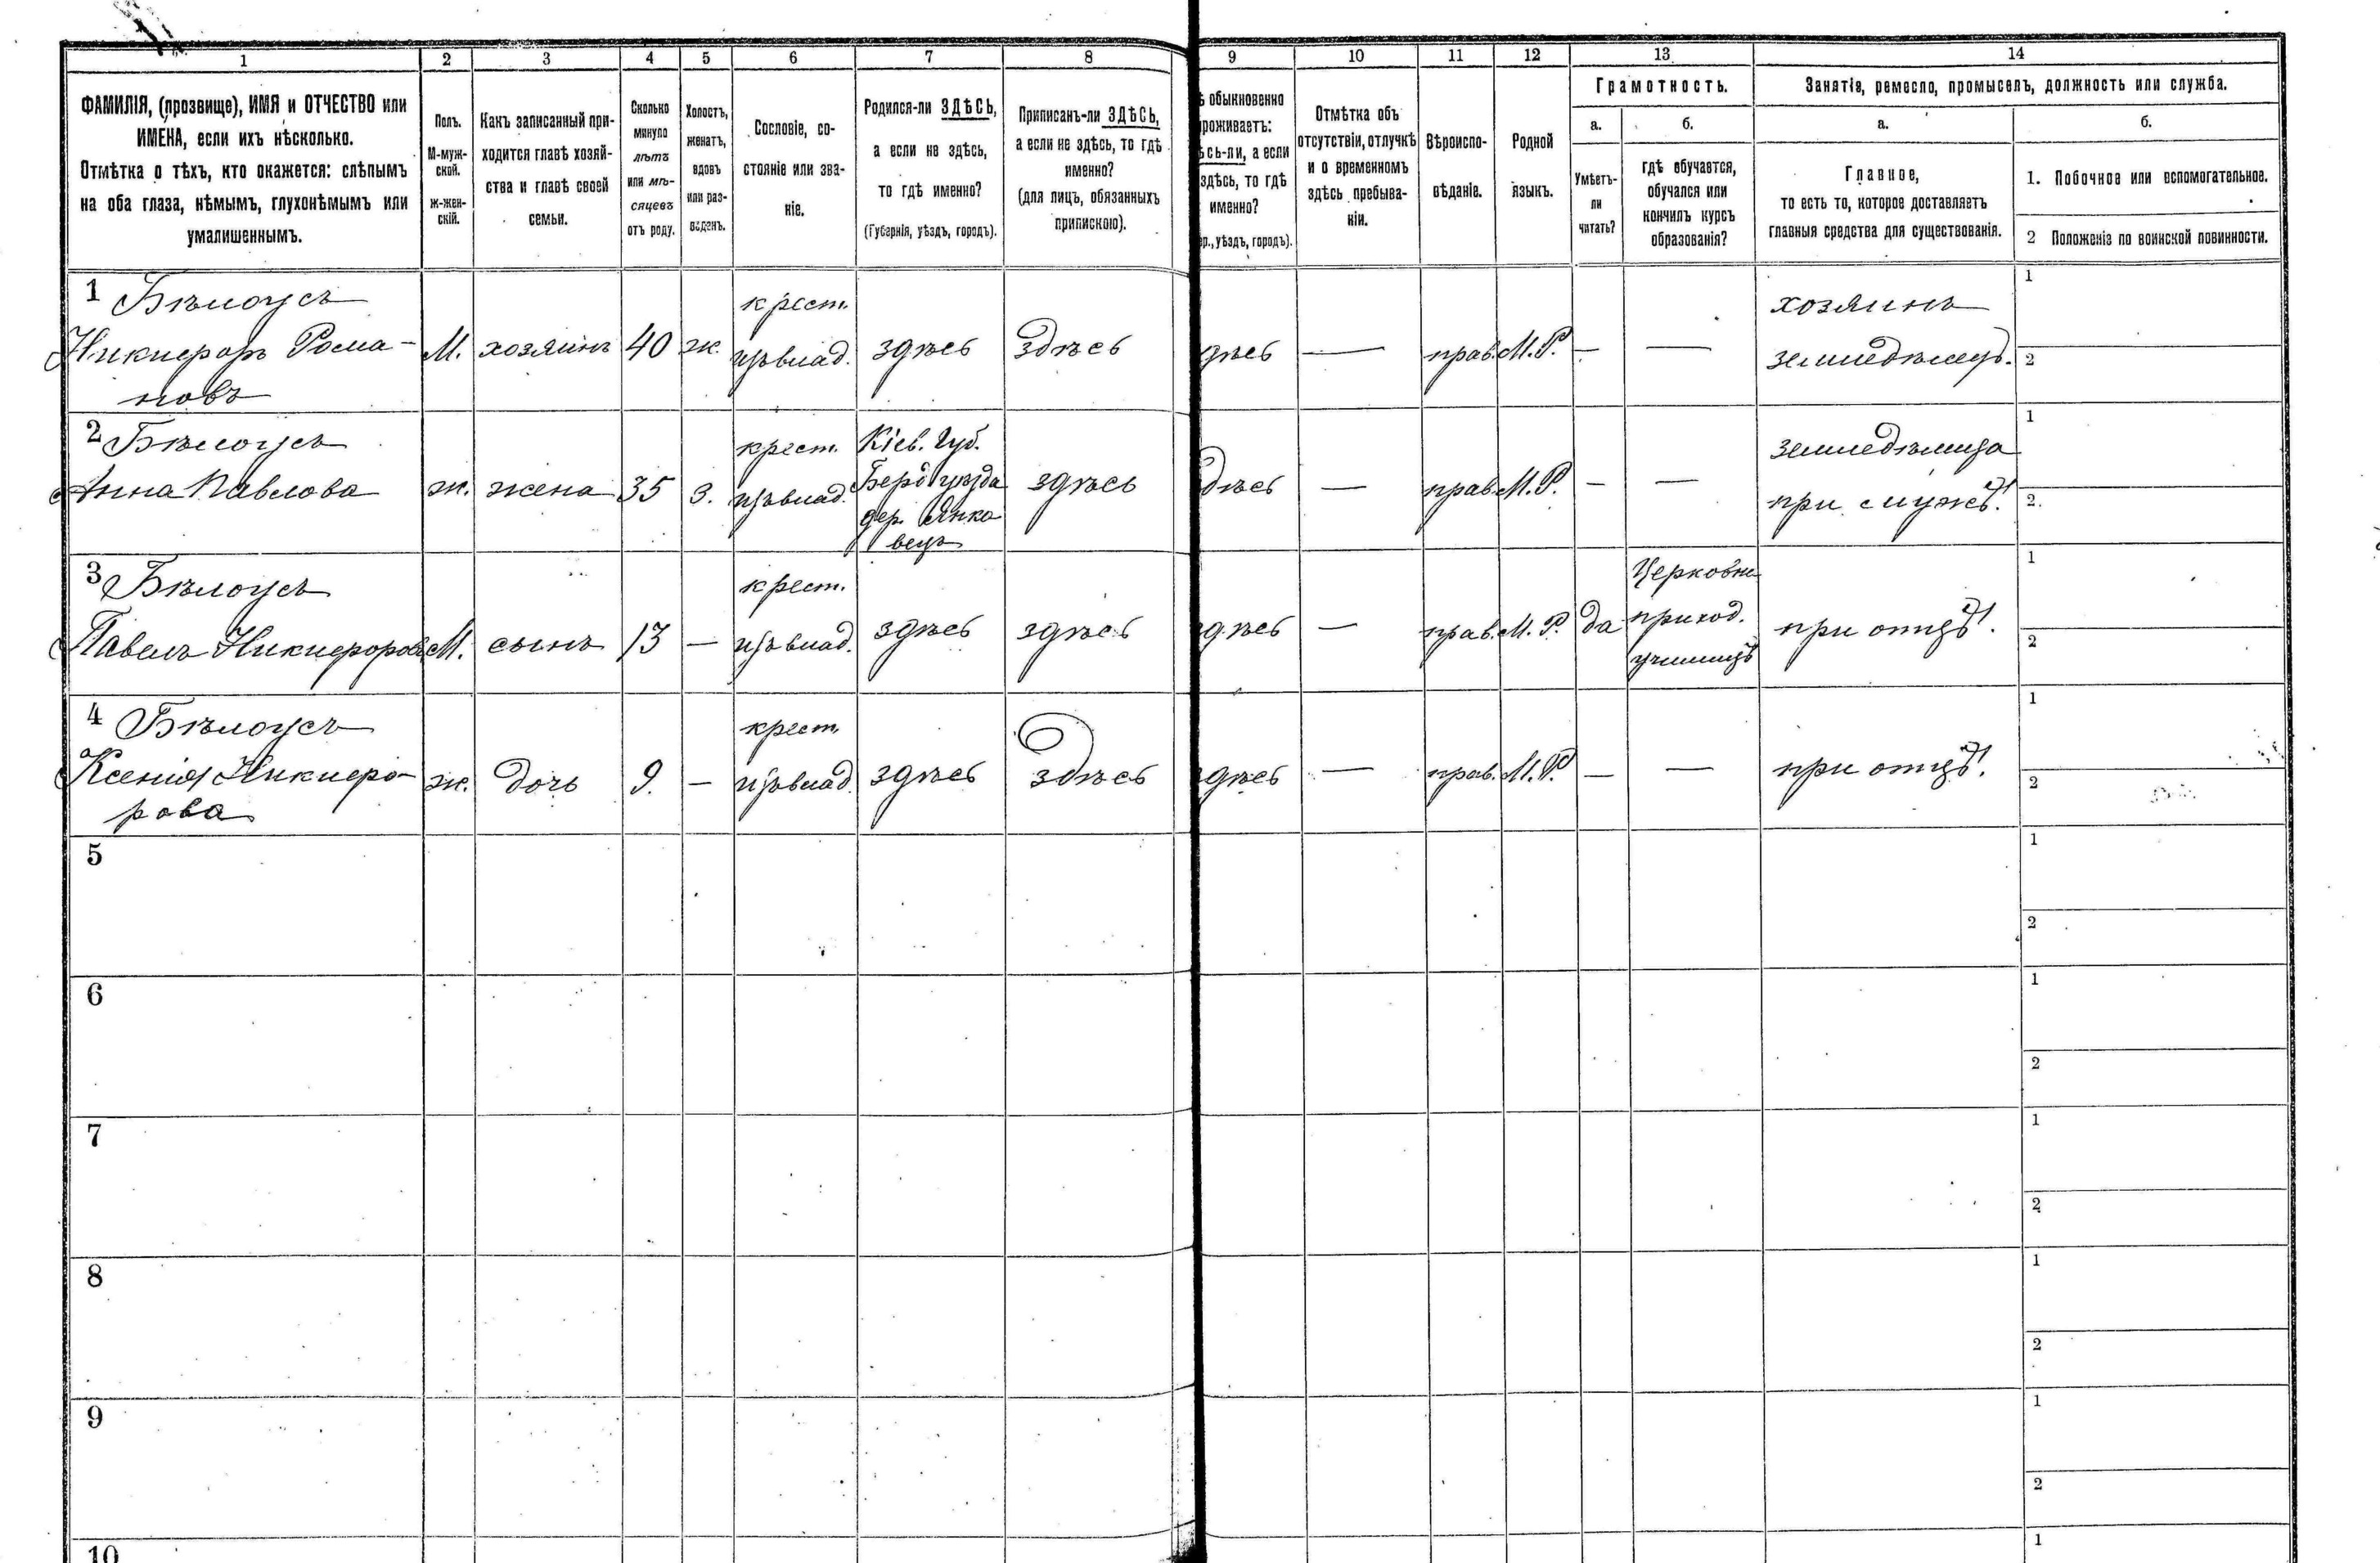 1 2 3 4 5 6 7 8 9 10 11 12 13 14
ФАМИЛІЯ, (прозвище), ИМЯ и ОТЧЕСТВО или
ИМЕНА, если ихъ нѣсколько.
Отмѣтка о тѣхъ, кто окажется: слѣпымъ
на оба глаза, нѣмымъ, глухонѣмымъ или
умалишеннымъ.
Полъ.
М-муж-
ской.
Ж-жен-
скій.
Какъ записанный при-
ходится главѣ хозяй-
ства и главѣ своей
семьи.
Сколько
минуло
лѣтъ
или мѣ-
сяцевъ
отъ роду.
Холостъ,
женатъ,
вдовъ
или раз-
веденъ.
Сословіе, со-
стояніе или зва-
ніе.
Родился-ли ЗДѢСЬ,
а если не здѣсь,
то гдѣ именно?
(Губернія, уѣздъ, городъ).
Приписанъ-ли ЗДѢСЬ,
а если не здѣсь, то гдѣ
именно?
(для лицъ, обязанныхъ
припискою).
ѣ обыкновенно
роживаетъ:
ѣсь-ли, а если
здѣсь, то гдѣ
именно?
р., уѣздъ, городъ).
Отмѣтка объ
отсутствіи, отлучкѣ
и о временномъ
здѣсь пребыва-
ніи.
Вѣроиспо-
вѣданіе.
Родной
языкъ.
Грамотность.
а.
Умѣетъ-
ли
читать?
б.
гдѣ обучается,
обучался или
кончилъ курсъ
образованія?
Занятія, ремесло, промыселъ, должность или служба.
а.
Главное,
то есть то, которое доставляетъ
главныя средства для существованія.
б.
1. Побочное или вспомогательное.
2 Положеніе по воинской повинности.
1 Бѣлоусъ
Никифоръ Рома-
новъ
М.
хозяинъ
40
ж.
крест.
изъ влад.
здѣсь
здѣсь
дѣсь
—
прав.
М. Р.
—
—
хозяинъ
земледѣлецъ.
1
2
2 Бѣлоусъ
Анна Павлова
ж.
жена
35
з.
крест.
изъ влад.
Кіев. Губ.
Берд уѣзда
дер. Янко
вецъ
здѣсь
дѣсь
—
прав.
М. Р.
—
—
земледѣлица
при мужѣ.
1
2.
3 Бѣлоусъ
Павелъ Никифоровъ
М.
сынъ
13
—
крест.
изъ влад.
здѣсь
здѣсь
здѣсь
—
прав.
М. Р.
да
Церковно
приход.
училищѣ
при отцѣ.
1
2
4 Бѣлоусъ
Ксенія Никифо-
рова
ж.
дочь
9.
—
крест.
изъ влад.
здѣсь
здѣсь
здѣсь
—
прав.
М. Р.
—
—
при отцѣ.
1
2
5
1
2
6
1
2
7
1
2
8
1
2
9
1
2
10
1